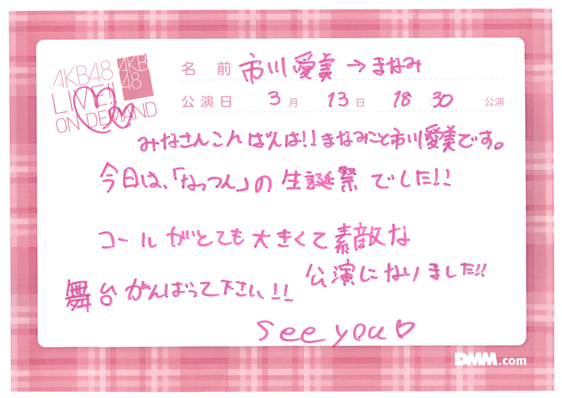 AKB48
LIVE!!
ON DEMAND
AKB
48
名 前 市川愛美→まなみ
公演日 3月 13日 18:30 公演
みなさんこんばんは!!まなみこと市川愛美です。
今日は、「なっつん」の生誕祭でした!!
コールがとても大きくて素敵な
公演になりました!!
舞台がんばって下さい!!
see you♡
DMM.com